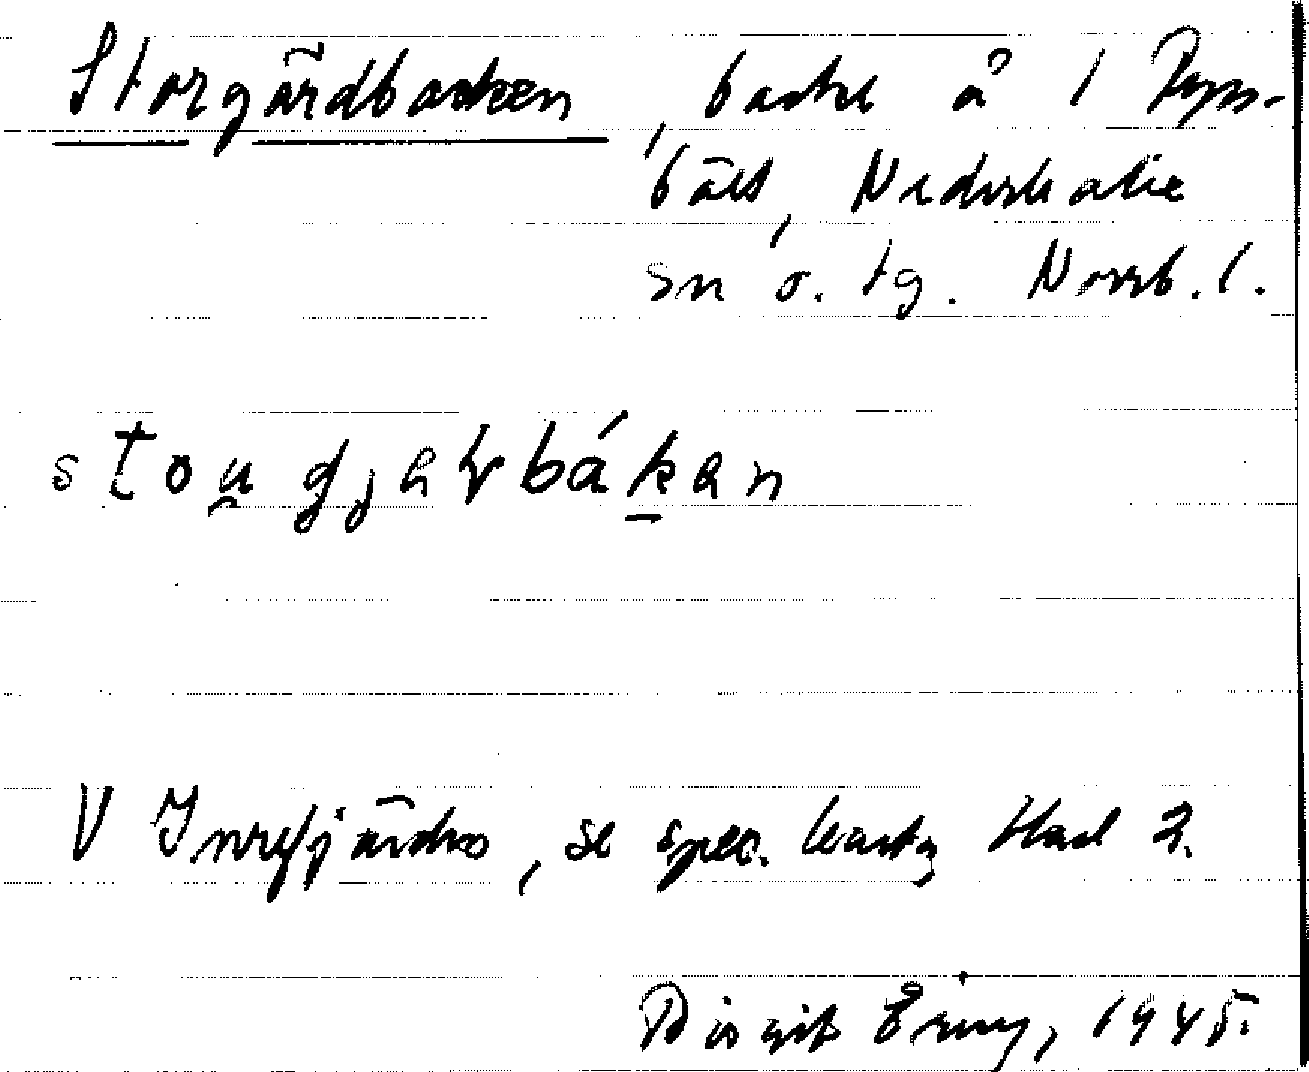 Storgärdbacken, backe å 1 Ryss-
bält, Nederkalix
sn o. tg. Norrb. l.
stou̯gjaɽbákan
V Innerfjärden, se spec. karta blad 2.
Birgit Ering, 1945.